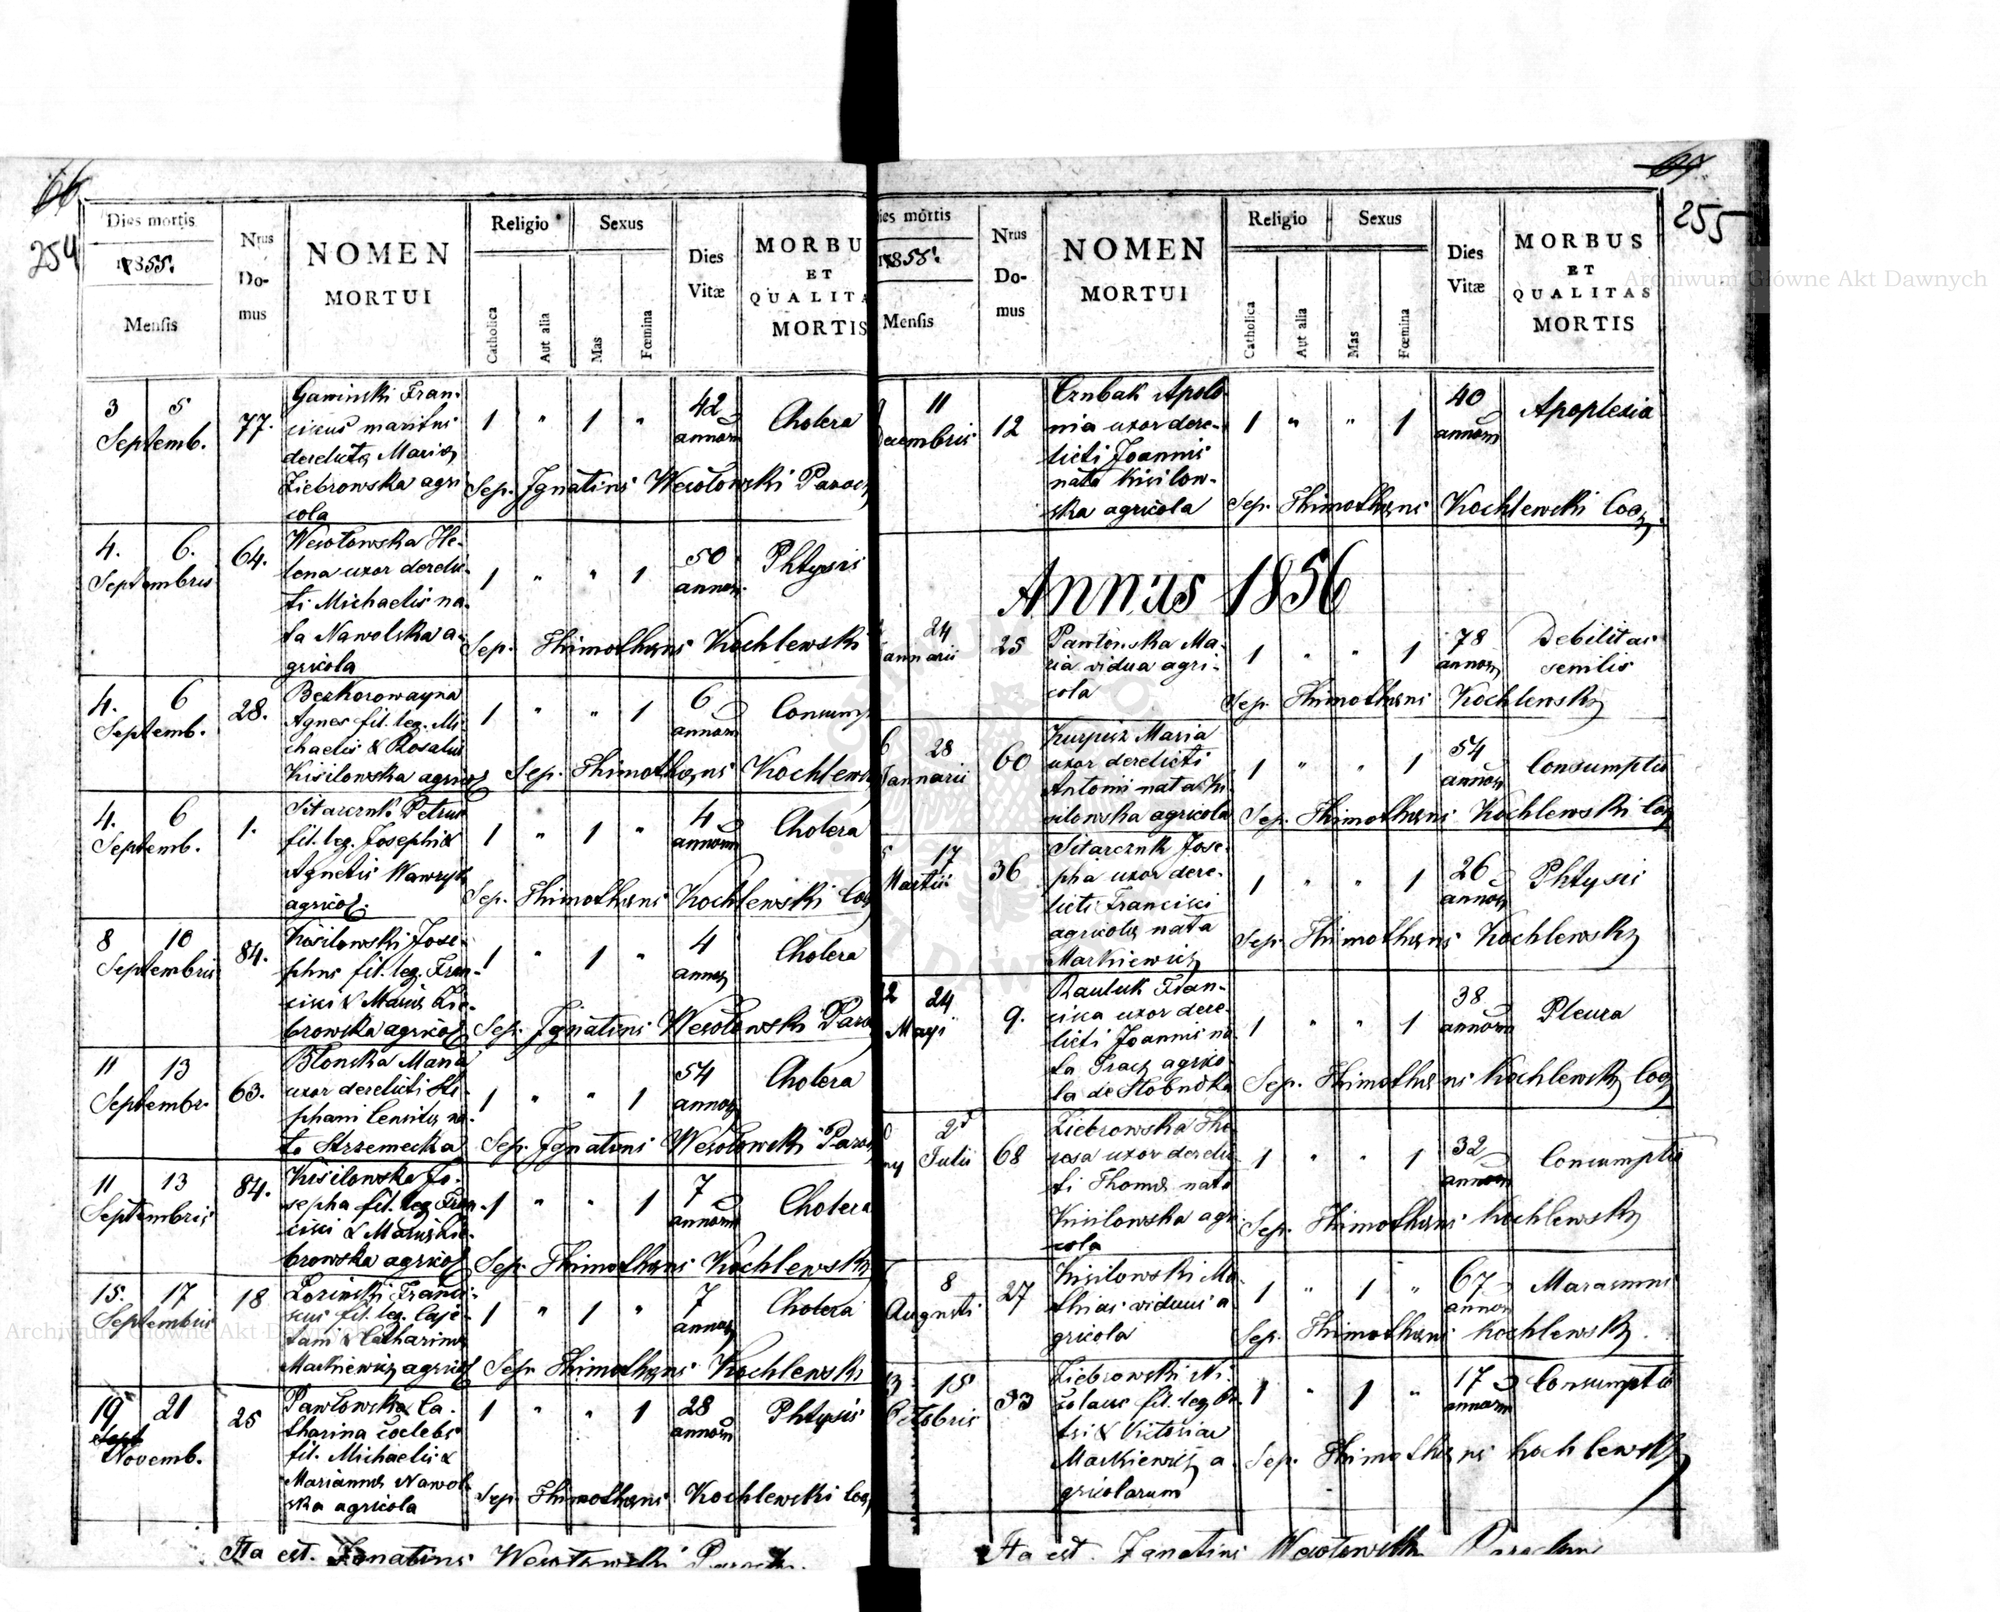 66
254
Dies mortis
1855.
Mensis
Nrus
Do-
mus
NOMEN
MORTUI
Religio
Catholica
Aut alia
Sexus
Mas
Fœmina
Dies
Vitæ
MORBU
ET
QUALITA
MORTIS
3 5
Septemb.
77.
Gawinski Fran-
ciscus maritus
derelictæ Mariæ
Ziebrowska agri
cola
1 " 1 "
42
annorum
Cholera
Sep. Ignatius Wesołowski Paroc
4. 6.
Septembris
64.
Wesołowska He-
lena uxor derelic-
ti Michaelis na-
ta Nawolska a-
gricola
1 " " 1
50
annor.
Phtysis
Sep. Thimothæus Kochlewski
4. 6
Septemb.
28.
Bezkorowayna
Agnes fil. leg. Mi-
chaelis & Rosaliæ
Kisilowska agricol
1 " " 1
6
annorum
Consump
Sep. Thimothæus Kochlews
4. 6
Septemb.
1.
Sitarczuk Petrus
fil. leg. Josephi &
Agnetis Wawryk
agricol.
1 " 1 "
4
annorum
Cholera
Sep. Thimothæus Kochlewski Coo
8 10
Septembris
84.
Kisilowski Jose-
phus fil. leg. Fran-
cisci & Mariæ Zie-
browska agricol
1 " 1 "
4
annor
Cholera
Sep. Ignatius Wesołowski Paro
11 13
Septembr.
63.
Błonska Maria
uxor derelicti Ste-
phani
to Strzemecka
1 " " 1
54
annor
Cholera
Sep. Ignatius Wesołowski Paro
11 13
Septembris
84.
Kisilowska Jo-
sepha fil. leg. Fran-
cisci & Mariæ Zie-
browska agricol
1 " " 1
7
annorum
Cholera
Sep. Thimothæus Kochlewsk
15. 17
Septembris
18
Łozinski Franci-
scus fil. leg. Caje-
tani & Catharinæ
Markiewicz agricol
1 " 1 "
7
annor
Cholera
Sep. Thimothæus Kochlewski
19 21
Sept
Novemb.
25
Pawłowska Ca-
tharina cœlebs
fil. Michaelis &
Mariannæ Nawol-
ska agricola
1 " " 1
28
annorum
Phtysis
Sep. Thimothæus Kochlewski Coo
Ita est. Ignatius Wesołowski Paroch.
255
ies mortis
1855.
Mensis
Nrus
Do-
mus
NOMEN
MORTUI
Religio
Catholica
Aut alia
Sexus
Mas
Fœmina
Dies
Vitæ
MORBUS
ET
QUALITAS
MORTIS
9 11
Decembris
12
Apolo-
nia uxor dere-
licti Joannis
nata Kisilow-
ska agricola
1 " " 1
40
annorum
Apoplexia
Sep. Thimothæus Kochlewski Coo
Annus 1856
24
Januarii
25
Pawłowska Ma-
ria vidua agri-
cola
1 " " 1
78
annor
Debilitas
senilis
Sep. Thimothæus Kochlewsky
6 28
Januarii
60
Kurpisz Maria
uxor derelicti
Antonii nata Ki
silowska agricola
1 " " 1
54
annor
Consumptio
Sep. Thimothæus Kochlewski Coo
5 17
Martii
36
Sitarczuk Jose-
pha uxor dere-
licti Francisci
agricolæ nata
Markiewicz
1 " " 1
26
annor
Phtysis
Sep. Thimothæus Kochlewsky
22 24
Maji
9.
Fran-
cisca uxor dere-
licti Joannis na-
ta Tracz agrico-
la de Słobudka
1 " " 1
38
annorum
Pleura
Sep. Thimothæus Kochlewsky Coo
2d
Julii
68
Ziebrowska The-
resa uxor derelic-
ti Thomæ nata
Kisilowska agri-
cola
1 " " 1
32
annorum
Consumptio
Sep. Thimothæus Kochlewsky
8
Augusti
27
Kisilowski Ma-
thias viduus a-
gricola
1 " 1 "
67
annor
Marasmus
Sep. Thimothæus Kochlewsky.
13 15
Octobris
33
Ziebrowski Ni-
colaus fil. leg. Pe-
tri & Victoriæ
Markiewicz a-
gricolarum
1 " 1 "
17
annorum
Consumptio
Sep. Thimothæus Kochlewsky
Ita est. Ignatius Wesołowski Parochus
Archiwum Główne Akt Dawnych
Archiwum Główne Akt Dawnych